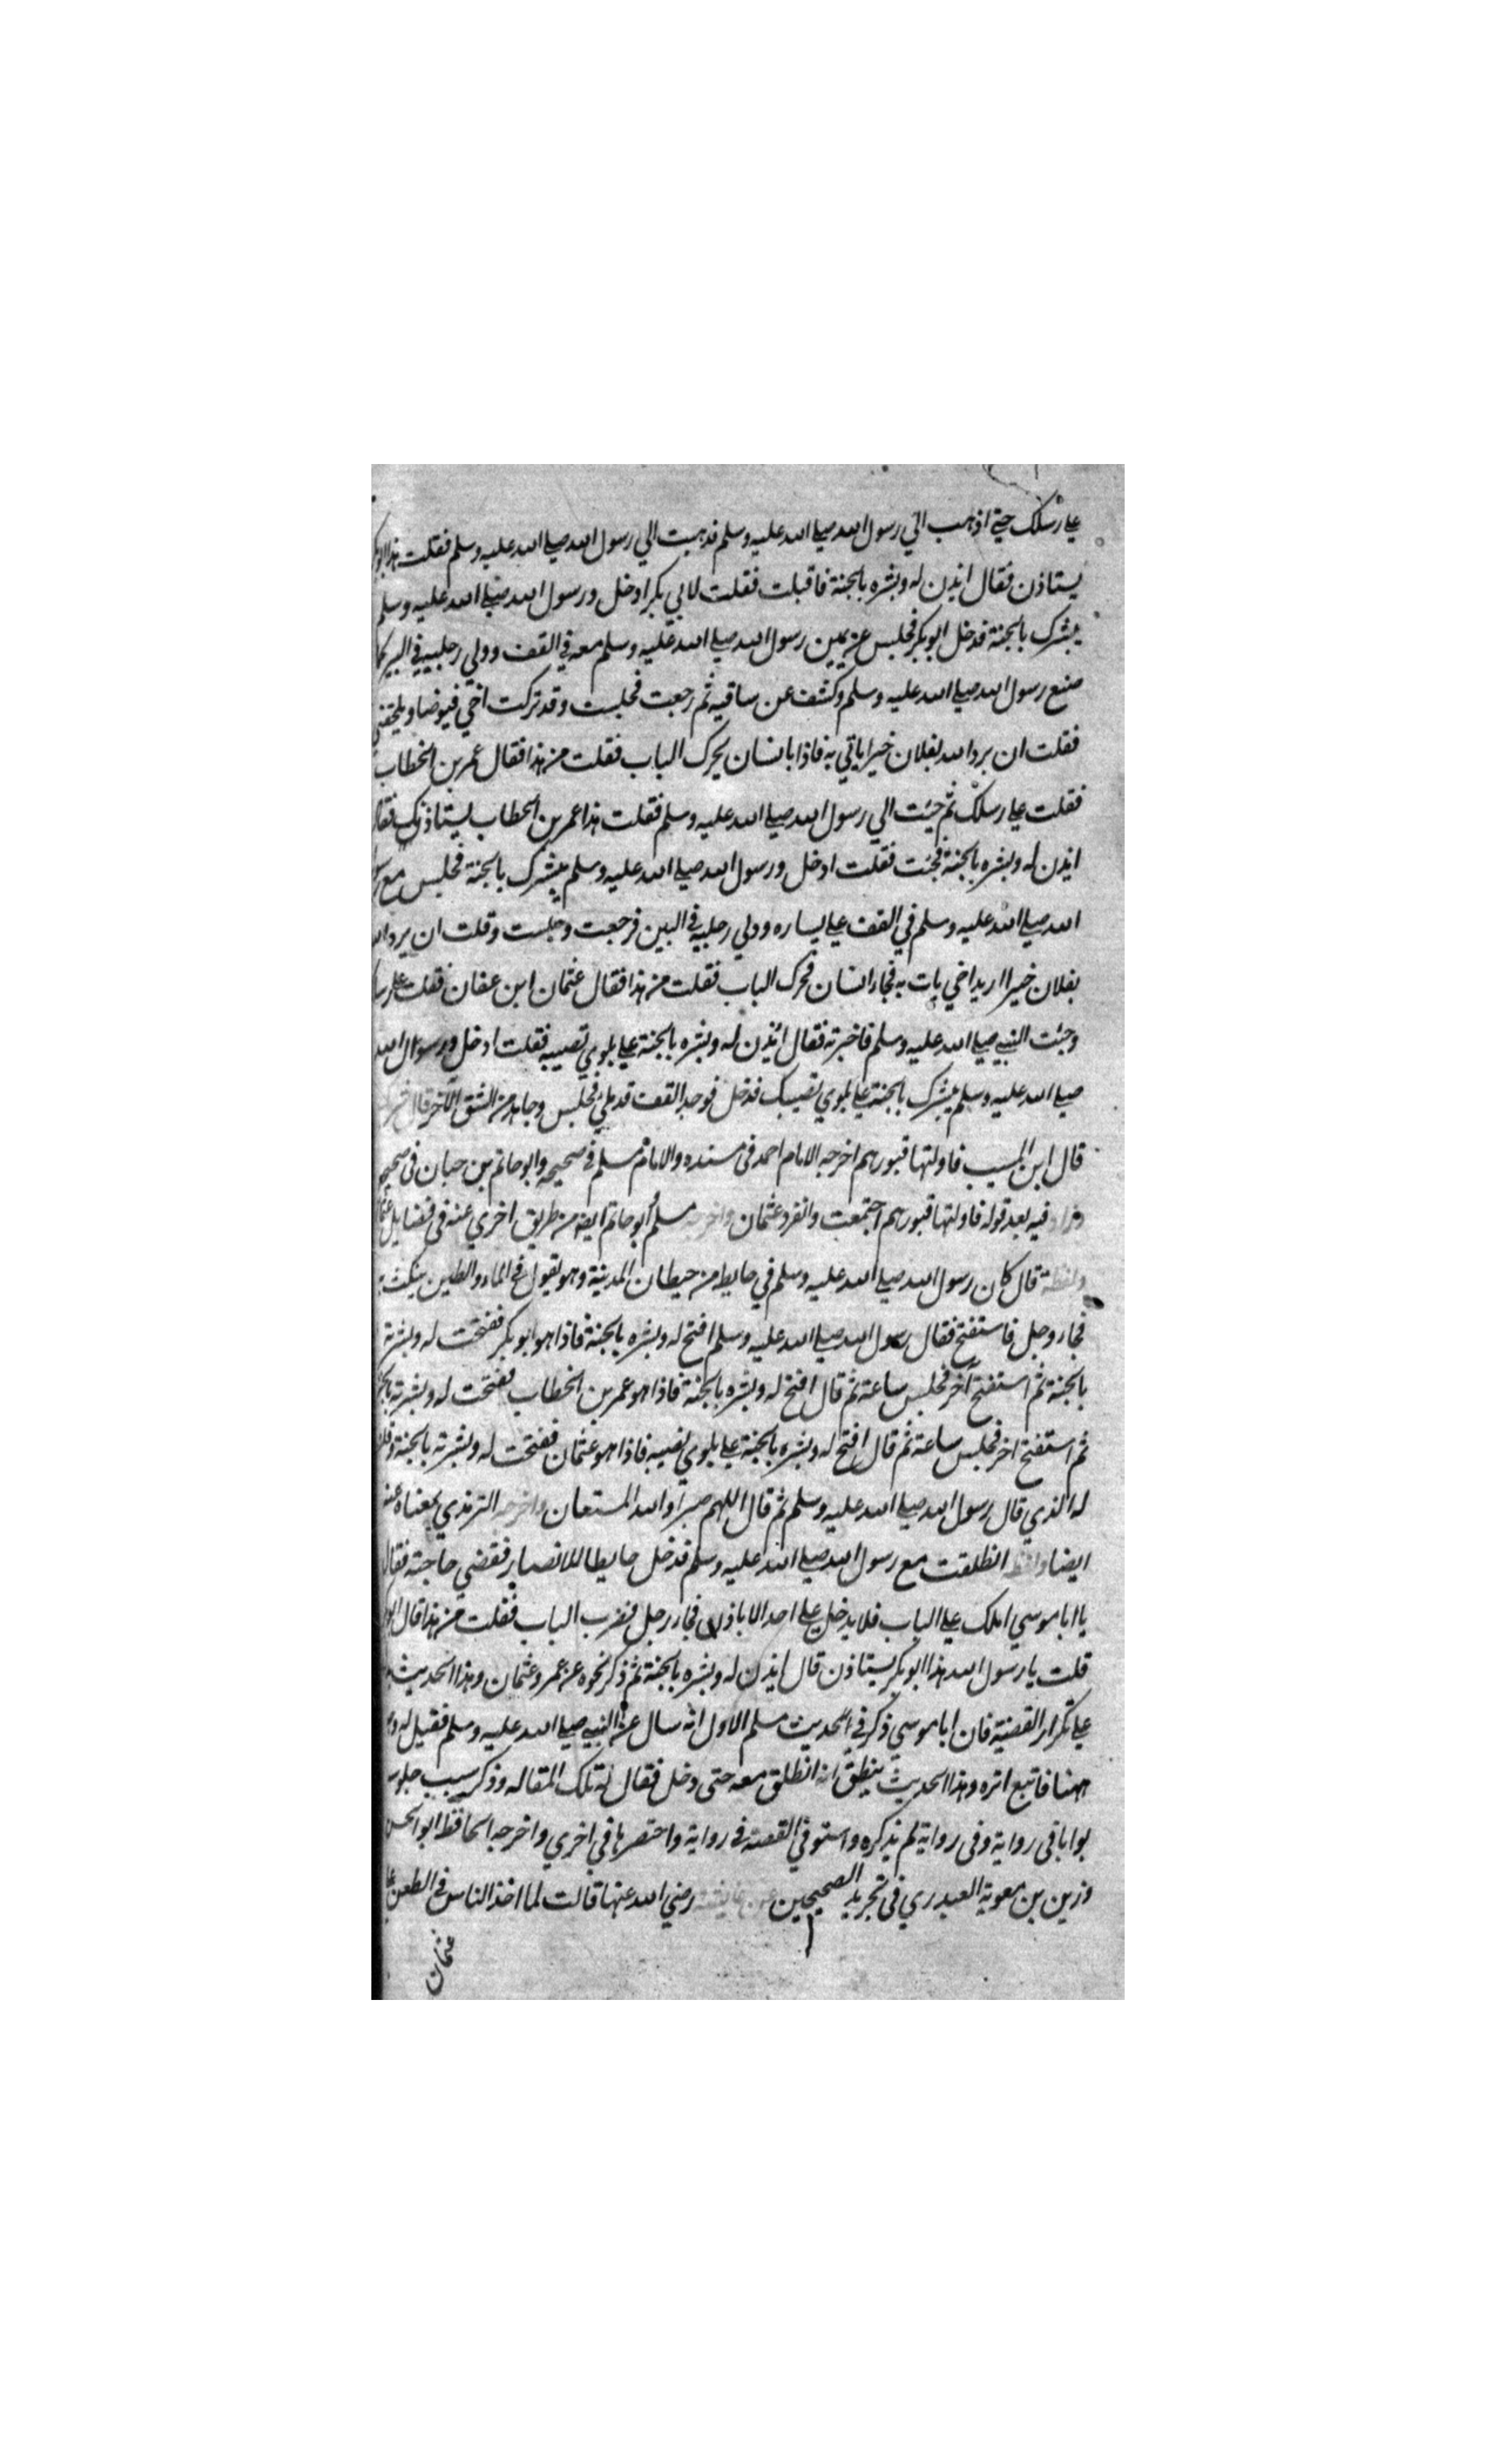 علي رسلك حتي اذهب الي رسول الله صلي الله عليه وسلم فذهبت الي رسول الله صلي الله عليه وسلم فقلت هذا ابو بكر
يستاذن فقال ايذن له وبشره بالجنة فاقبلت فقلت لابي بكر ادخل ورسول الله صلي الله عليه وسلم
يبشرك بالجنة فدخل ابو بكر فجلس عن يمين رسول الله صلي الله عليه وسلم معه في القف وولي رجليه في البير كما
صنع رسول الله صلي الله عليه وسلم وكشف عن ساقيه ثم رجعت فجلست وقد تركت اخي فيوضا ويلحقني
فقلت ان يرد الله بفلان خيرا ياتي به فاذا بانسان يحرك الباب فقلت من هذا فقال عمر بن الخطاب
فقلت علي رسلك ثم جيت الي رسول الله صلي الله عليه وسلم فقلت هذا عمر بن الخطاب يستاذنك فقال
ايذن له وبشره بالجنة فجئت فقلت ادخل ورسول الله صلي الله عليه وسلم يبشرك بالجنة فجلس مع رسول
الله صلي الله عليه وسلم في القف علي يساره وولي رجليه في البير فرجعت وجلست وقلت ان يرد الله
بفلان خيرا اريد اخي يات به فجاء انسان فحرك الباب فقلت من هذا فقال عثمان ابن عفان فقلت علي رسلك
وجئت النبي صلي الله عليه وسلم فاخبرته فقال ائذن له وبشره بالجنة علي بلوي تصيبه فقلت ادخل ورسول الله
صلي الله عليه وسلم يبشرك بالجنة علي بلوي تصيبك فدخل فوجد القف قد ملئ فجلس وجاهه من الشق الآخر قال
قال ابن المسيب فاولتها قبورهم اخرجه الامام احمد في مسنده والامام مسلم في صحيحه وابو حاتم بن حبان في صحيحه
وزاد فيه بعد قوله فاولتها قبورهم اجتمعت وانفرد عثمان واخرجه مسلم أبو حاتم ايضه من طريق اخري عنه في فضايل عثمان
ولفظه قال كان رسول الله صلي الله عليه وسلم في حايط من حيطان المدينة وهو يقول في الماء والطين ينكث به
فجاء رجل فاستفتح فقال رسول الله صلي الله عليه وسلم افتح له وبشره بالجنة فاذا هو ابو بكر ففتحت له وبشرته
بالجنة ثم استفتح آخر فجلس ساعة ثم قال افتح له وبشره بالجنة فاذا هو عمر بن الخطاب ففتحت له وبشرته بالجنة
ثم استفتح اخر فجلس ساعة ثم قال افتح له وبشره بالجنة علي بلوي تصيبه فاذا هو عثمان ففتحت له وبشرته بالجنة وقلت
له الذي قال رسول الله صلي الله عليه وسلم ثم قال اللهم صبرا والله المستعان واخرجه الترمذي بمعناه عنه
ايضا ولفظه انطلقت مع رسول الله صلي الله عليه وسلم فدخل حايطا للانصار فقضي حاجته فقال
يا ابا موسي املك علي الباب فلا يدخل علي احد الا باذن فجاء رجل فضرب الباب فقلت من هذا قال ابو
قلت يا رسول الله هذا ابو بكر يستاذن قال ايذن له وبشره بالجنة ثم ذكر نحوه عن عمر وعثمان وهذا الحديث
علي تكرار القضية فان ابا موسي ذكر في الحديث مسلم الاول انه سال عن النبي صلي الله عليه وسلم فقيل له
ههنا فاتبع اثره وهذا الحديث ينطق انه انطلق معه حتى دخل فقال له تلك المقاله وذكر سبب جلوسه
بوابا في رواية وفي رواية لم يذكره واستوفي القصة في رواية واختصرها في اخري واخرجه الحافظ ابو الحسن
وزين بن معوية العبدري في تجريد الصحيحين عن عايشة رضي الله عنها قالت لما اخذ الناس في الطعن علي
عثمان